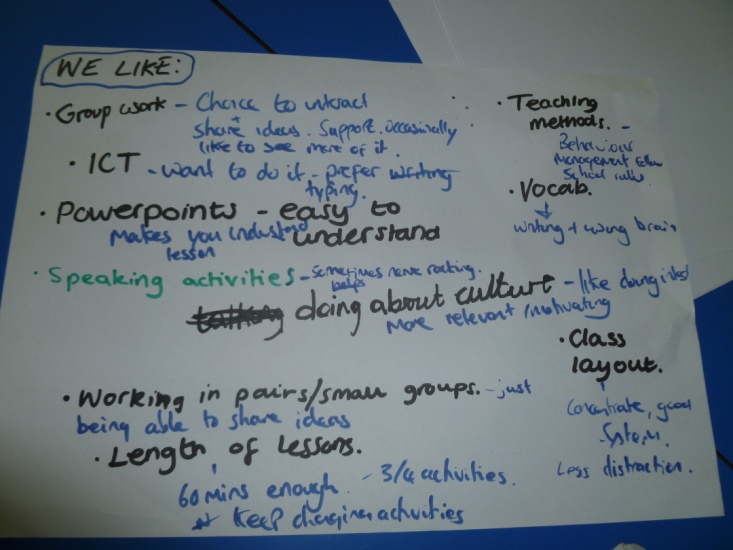 WE LIKE:
· Group work - Chance to interact
+
share ideas. Support. occasionally
like to see more of it.
· ICT - want to do it - prefer writing
typing.
· Powerpoints - easy to
understand
Makes you understand
lesson
· Speaking activities - sometimes nerve racking.
helps
doing about culture - like doing
More relevant / motivating
· Working in pairs/small groups. - just
being able to share ideas
· Length of lessons.
60 mins enough. - 3/4 activities.
Keep changing activities
· Teaching
methods. -
Behaviour
Management follow
School rules
· Vocab.
writing + using brain
· Class
layout.
Concentrate, good
System.
Less distraction.